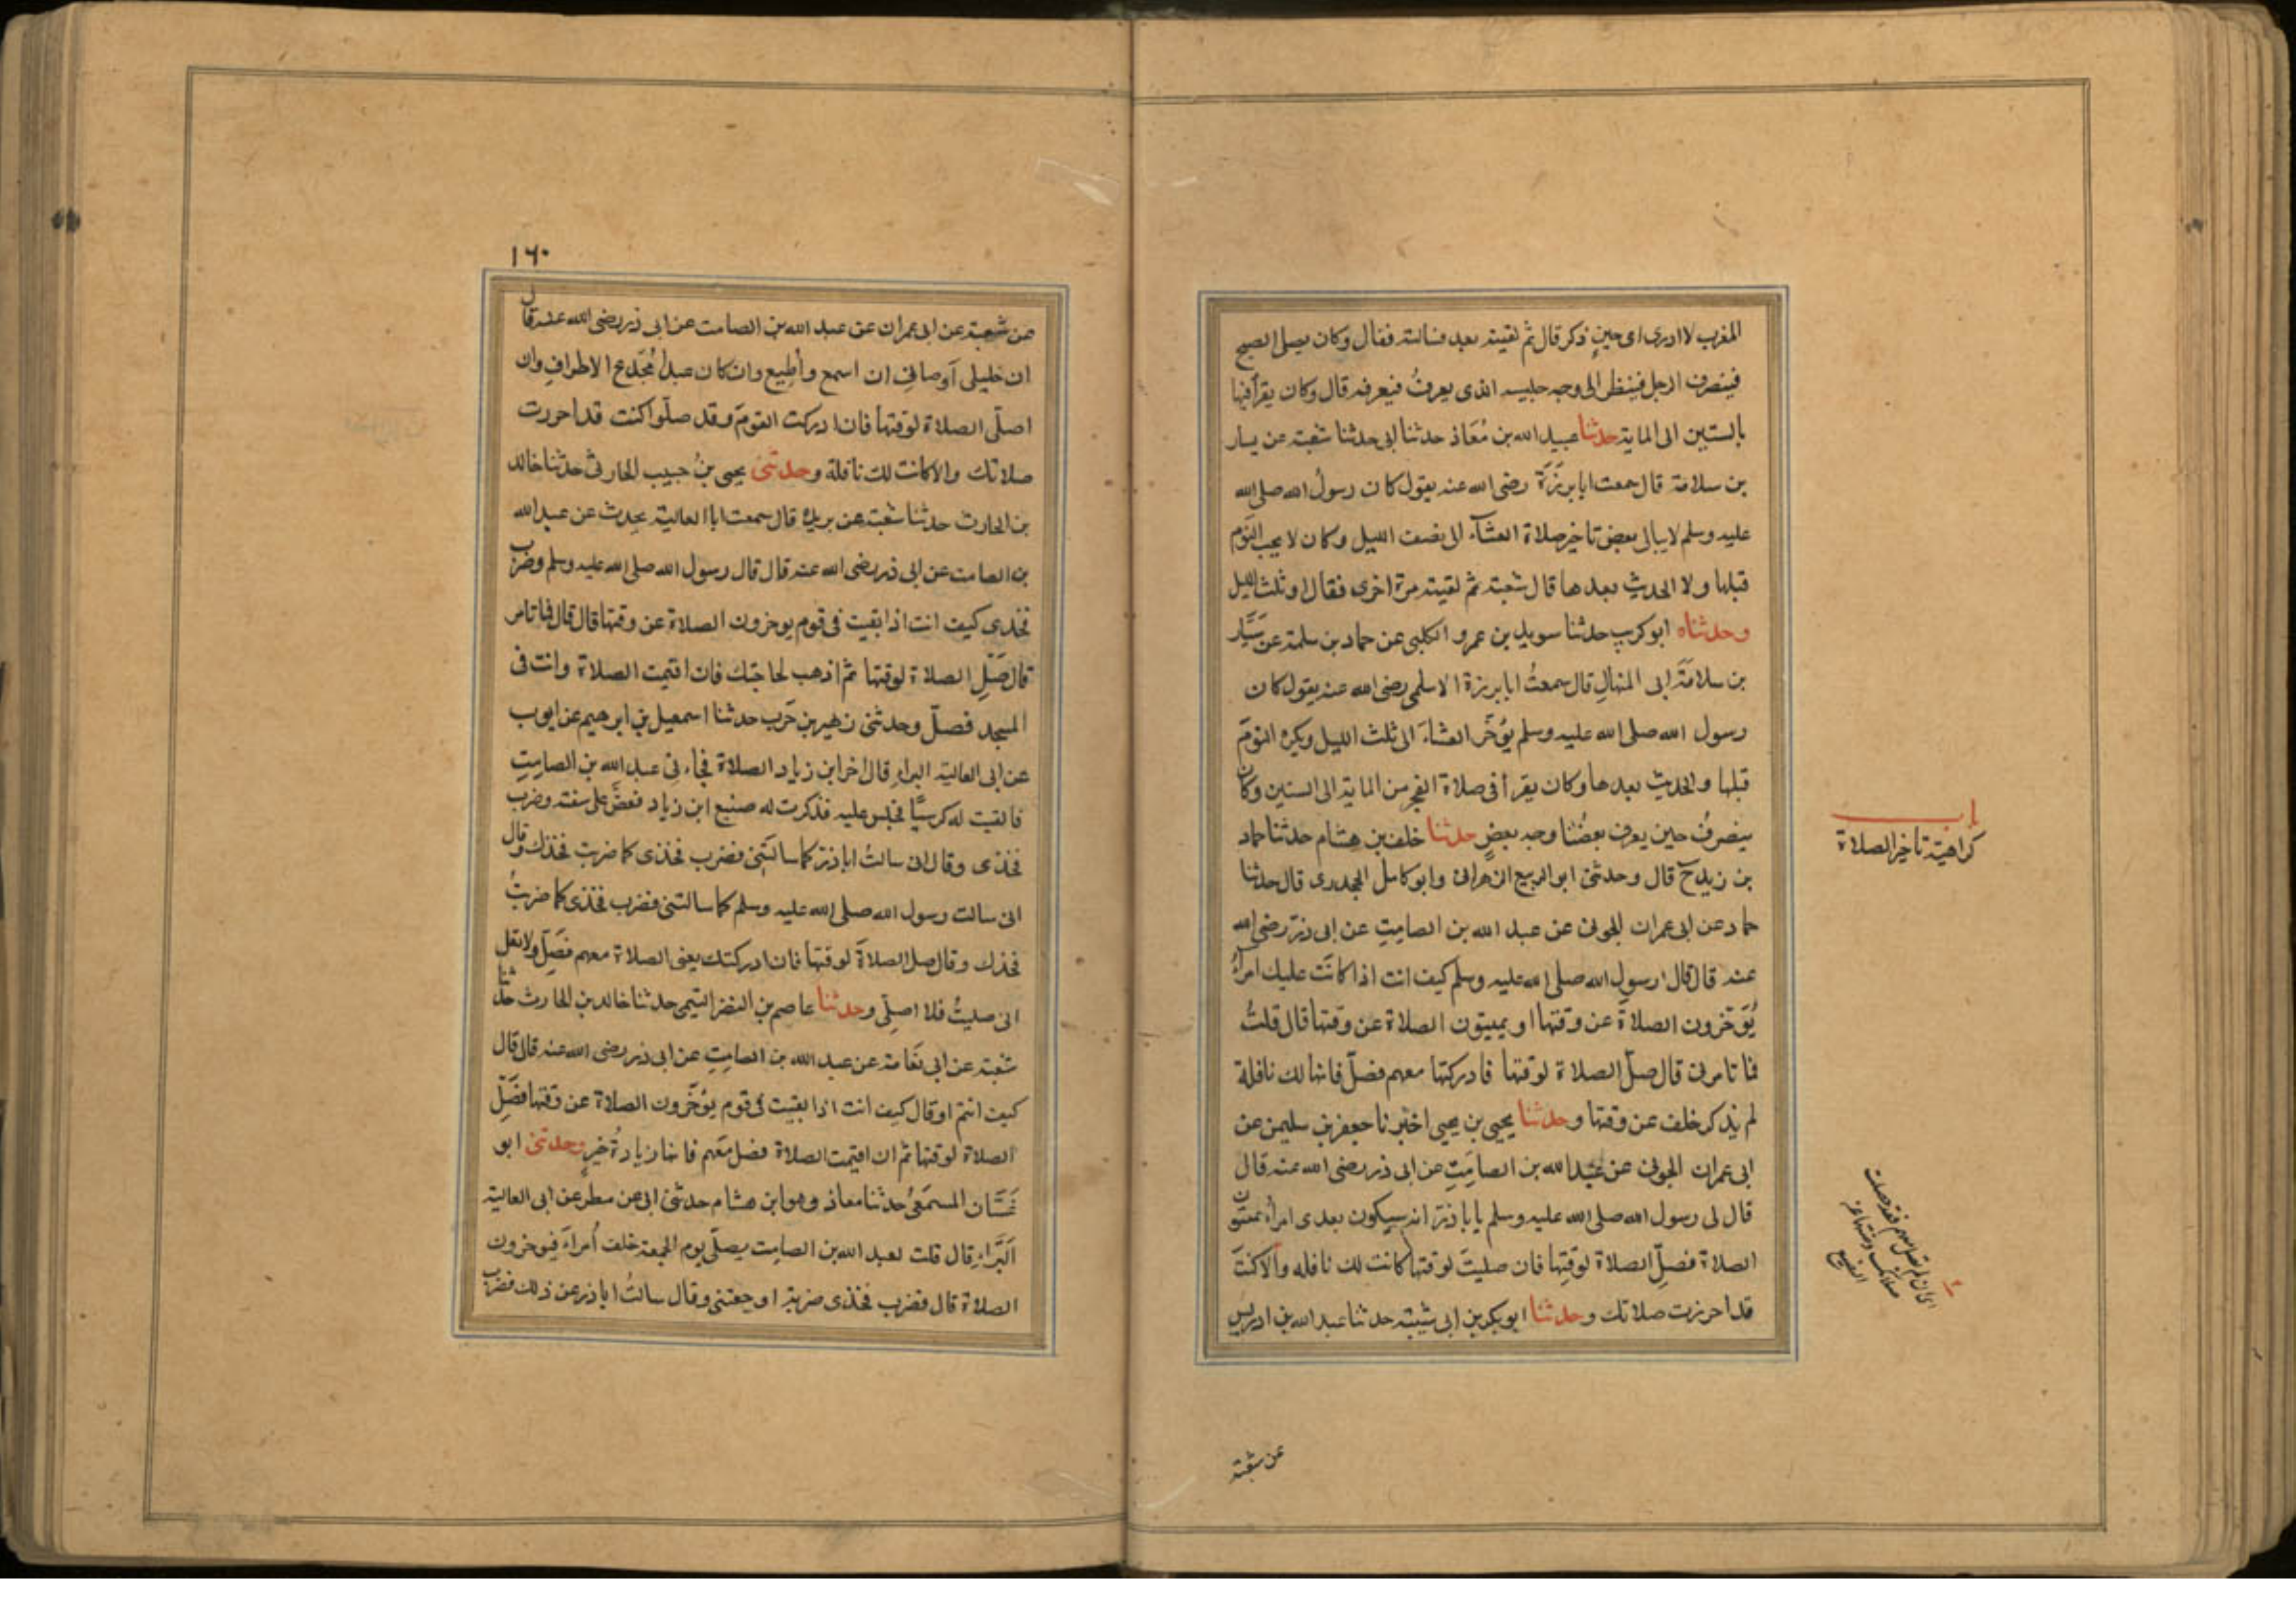 المغرب لا ادرى اى حينٍ ذكر قال ثم لقيته بعد فسالته فقال وكان يصلى الصبح
فينصرف الرجل فينظر الى وجه جليسه الذى يعرفُ فيعرفه قال وكان يقرأ فيها
بالستين الى الماية حدثنا عبيد الله بن مُعَاذ حدثنا ابى حدثنا شعبة عن سيار
بن سلامة قال سمعت ابا برزَة رضى الله عنه يقول كان رسولُ الله صلى الله
عليه وسلم لا يبالى بعض تاخير صلاة العشآء الى نصف الليل وكان لا يحب النوم
قبلها ولا الحديث بعدها قال شعبة ثم لقيته مرة اخرى فقال او ثلث الليل
وحدثناه ابو كريب حدثنا سويد بن عمرو الكلبى عن حماد بن سلمة عن سَيَّار
بن سلامَة ابى المنهالِ قال سمعتُ ابا برزة الاسلمى رضى الله عنه يقول كان
رسول الله صلى الله عليه وسلم يُؤخّر العشاءَ الى ثلث الليل ويكره النومَ
قبلها والحديث بعدها وكان يقرأ فى صلاة الفجر من الماية الى الستين وكان
ينصرفُ حين يعرف بعضُنا وجه بعضٍ حدثنا خلف بن هشام حدثنا حماد
بن زيد ح قال وحدثنى ابو الربيع الزهرانى وابو كامل الجحدرى قال حدثنا
حماد عن ابى عمران الجونى عن عبد الله بن الصامِتِ عن ابى ذرّ رضى الله
عنه قال قال رسول الله صلى الله عليه وسلم كيف انت اذا كانَت عليك امرآءُ
يُؤَخّرون الصلاةَ عن وقتها او يميتون الصلاة عن وقتها قال قلتُ
فما تامرنى قال صلّ الصلاة لوقتها فادركتها معهم فصلّ فانها لك نافلة
لم يذكر خلف عن وقتها وحدثنا يحيى بن يحيى اخبرنا جعفر بن سليمن عن
ابى عمران الجونى عن عبد الله بن الصامِتِ عن ابى ذر رضى الله عنه قال
قال لى رسول الله صلى الله عليه وسلم يابا ذرّ انه سيكون بعدى امرآء يميتون
الصلاة فصلِّ الصلاة لوقتِها فان صليتَ لوقتها كانت لك نافله والا كنتَ
قد احرزت صلاتك وحدثنا ابو بكر بن ابى شيبة حدثنا عبد الله بن ادريس
باب
كراهية تاخير الصلاة
عن شعبة
١٦٠
عن شعبة عن ابى عمران عن عبد الله بن الصامت عن ابى ذر رضى الله عنه قال
ان خليلى اَوصانى ان اسمع وأُطِيع وان كان عبداً مُجَدّع الاطرافِ وان
اصلّى الصلاة لوقتها فان ادركت القومَ وقد صلّوا كنت قد احررت
صلاتك والا كانت لك نافلة وحدثنى يحيى بنُ حبيب الحارثى حدثنا خالد
بن الحارث حدثنا شعبة عن بريد قال سمعت ابا العالية يحدث عن عبد الله
بن الصامت عن ابى ذر رضى الله عنه قال قال رسول الله صلى الله عليه وسلم وضرب
فخذى كيف انت اذا بقيت فى قوم يوخرون الصلاة عن وقتها قال قال فما تامر
قال صَلِّ الصلاة لوقتها ثم اذهب لحاجتك فان اقيمت الصلاة وانت فى
المسجد فصلّ وحدثنى زهير بن حَرب حدثنا اسمعيل بن ابرهيم عن ايوب
عن ابى العالية البراءِ قال اخر ابن زياد الصلاة فجاءنى عبد الله بن الصامِتِ
فالقيت له كرسيًّا فجلس عليه فذكرت له صنيع ابن زياد فعضَّ على شفته وضرب
فخذى وقال انى سالتُ ابا ذرّ كما سالتَنِى فضرب فخذى كما ضربت فخذك وقال
انى سالت رسول الله صلى الله عليه وسلم كما سالتنى فضرب فخذى كما ضربتُ
فخذك وقال صل الصلاةَ لوقتها فان ادركتك يعنى الصلاة معهم فصَلّ ولا تقل
انى صليتُ فلا اصلّى وحدثنا عاصم بن النضر التيمى حدثنا خالد بن الحارث حدثنا
شعبة عن ابى نَعَامة عن عبد الله بن الصامِتِ عن ابى ذر رضى الله عنه قال قال
كيف انتم او قال كيف انت اذا بقيت فى قوم يؤخّرون الصلاة عن وقتها فصَلِّ
الصلاة لوقتها ثم ان اقيمت الصلاة فصل معَهم فانها زيادةُ خيرٍ وحدثنى ابو
غَسَّان المسمَعىُّ حدثنا معاذ وهو ابن هشام حدثنى ابى عن مطر عن ابى العالية
البَرَّاءِ قال قلت لعبد الله بن الصامِت يصلّى يوم الجمعة خلف اُمراءَ فيوخرون
الصلاة قال فضرب فخذى ضربة اوجعتنى وقال سالتُ ابا ذر عن ذلك فضرب